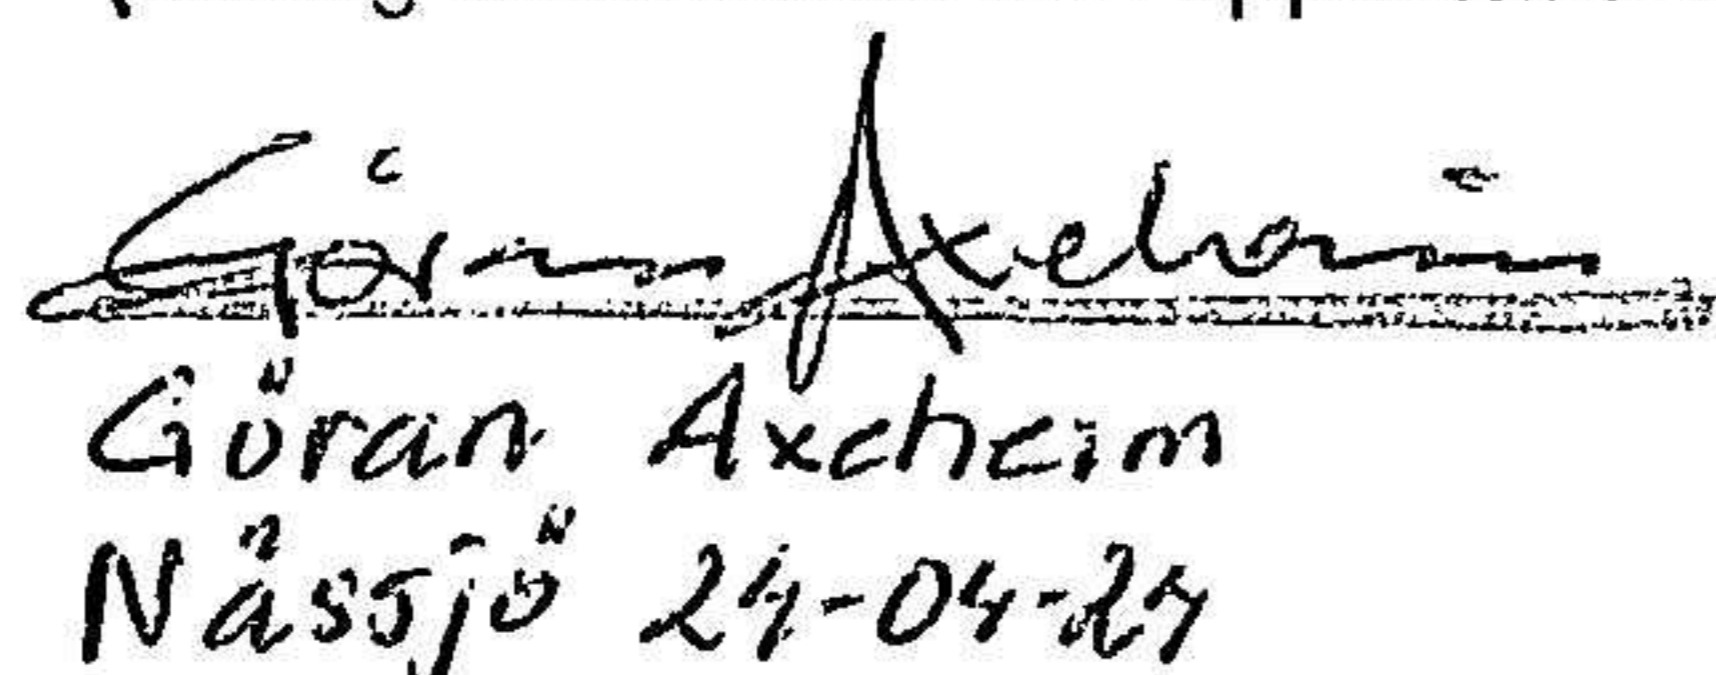 Göran Axelheim
Göran Axelheim
Nässjö 24-04-24